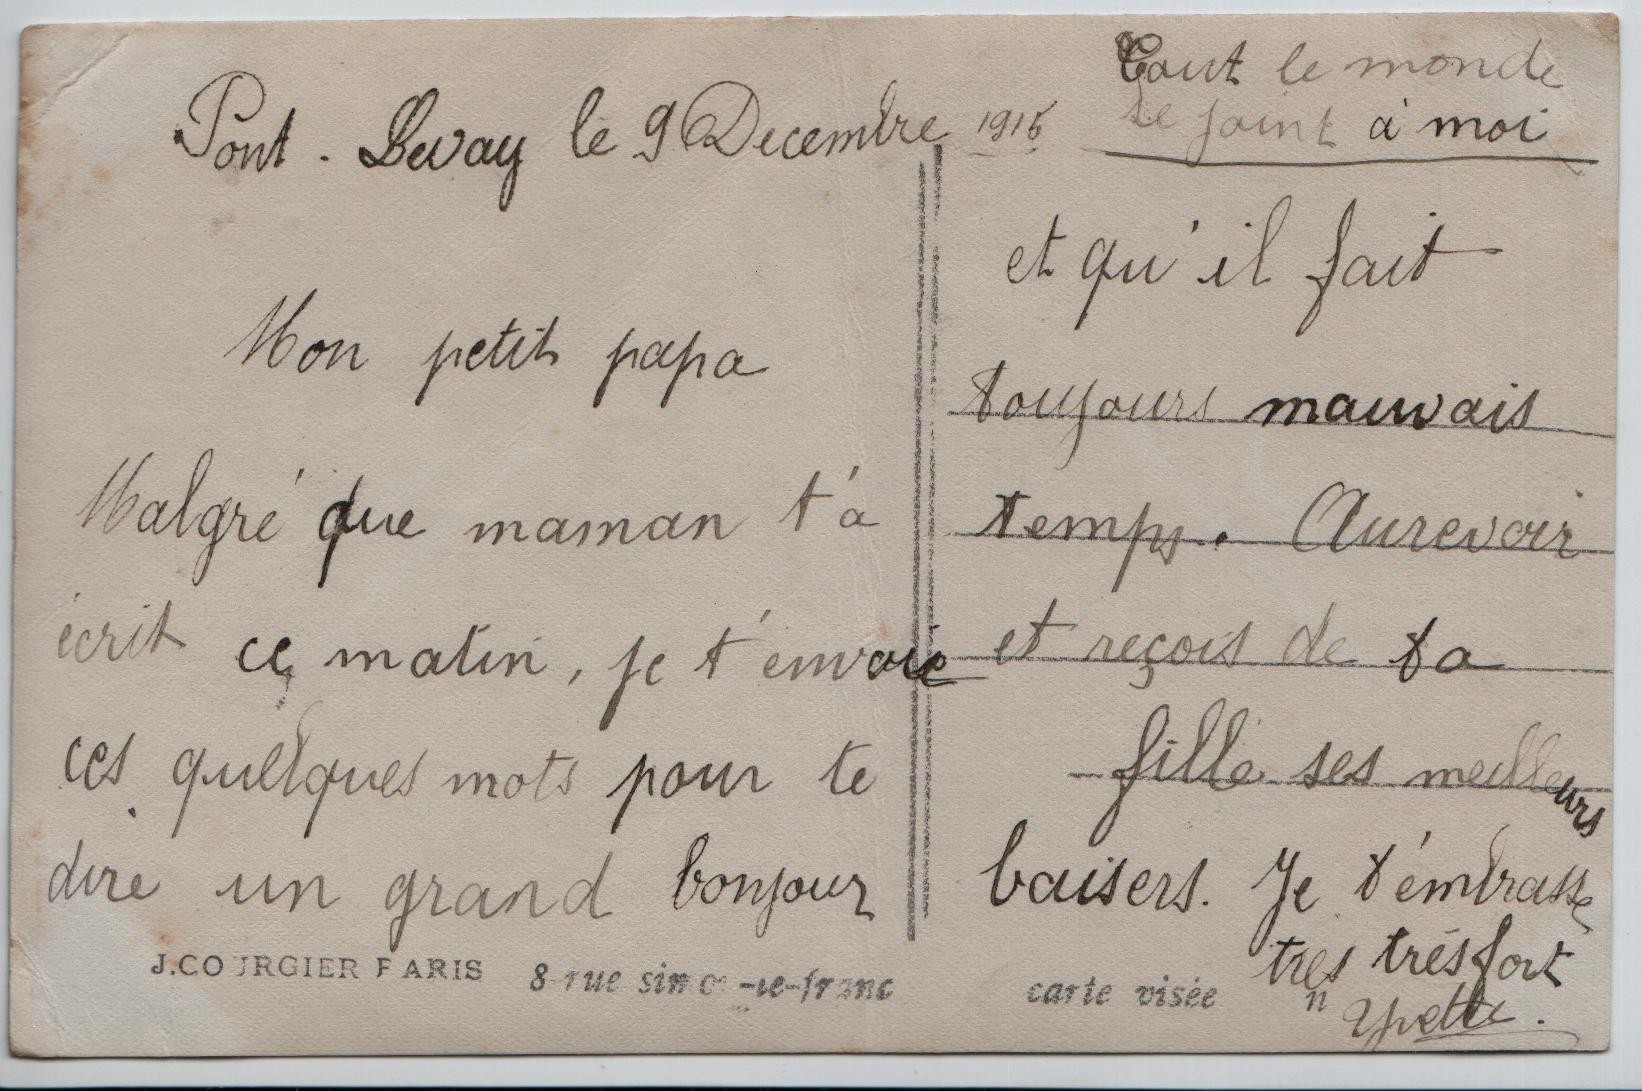 Pont. Levoy le 9 Decembre 1915
Mon petit papa
Malgré que maman t'a
écrit ce matin, je t'envoie
ces quelques mots pour te
dire un grand bonjour
et qu'il fait
toujours mauvais
temps. Aurevoir
et reçois de ta
fille ses meilleurs
baisers. Je t'émbrasse
tres trés fort
Yvette.
Tout le monde
se joint à moi
J.COURGIER PARIS 8 rue simon-le-franc carte visée n